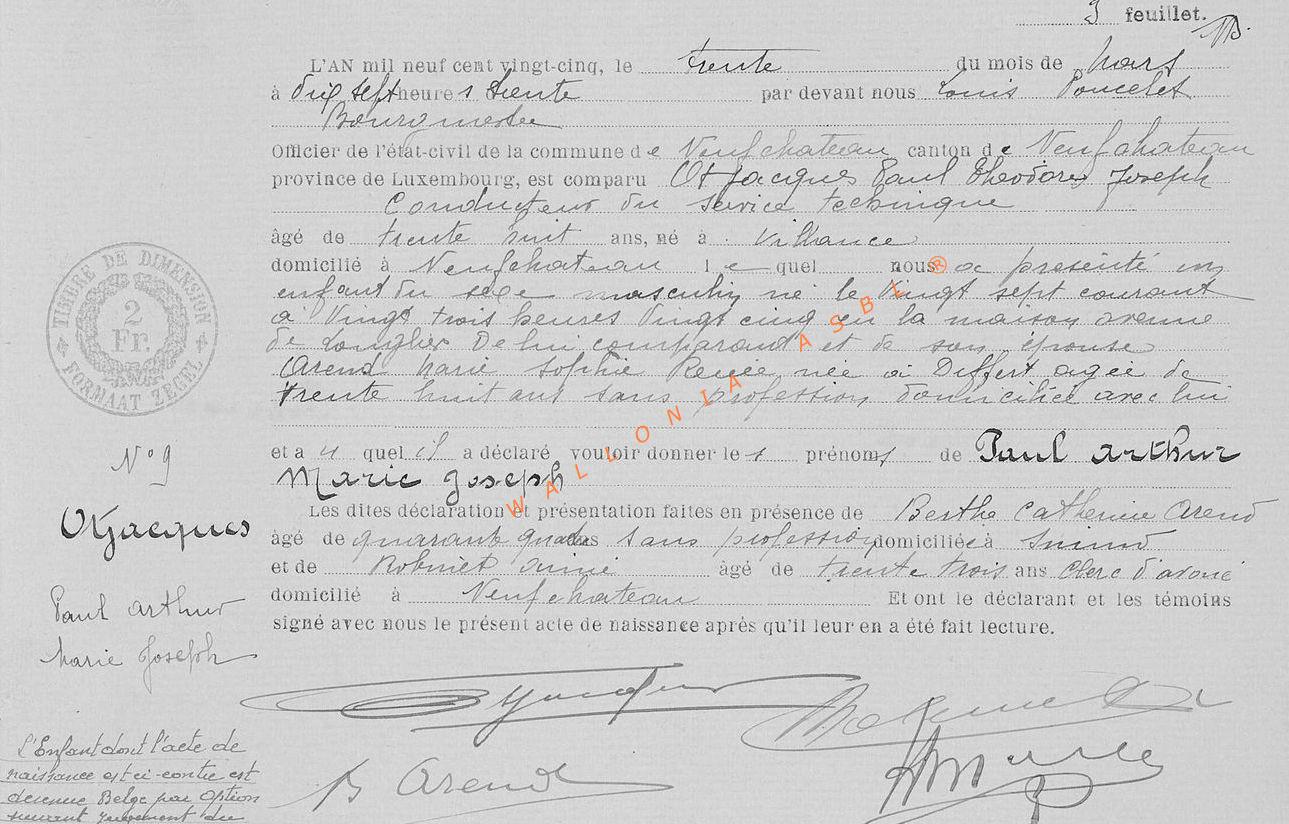 9 feuillet.
L'AN mil neuf cent vingt-cinq, le trente du mois de Mars
à dix sept heures trente par devant nous Louis Poncelet
Bourgmestre
Officier de l'état-civil de la commune de Neufchateau canton de Neufchateau
province de Luxembourg, est comparu Otjacques Paul Théodore Joseph
Conducteur du service technique
âgé de trente huit ans, né à Villance
domicilié à Neufchateau lequel nous a présenté un
enfant du sexe masculin né le vingt sept courant
à vingt trois heures vingt cinq en la maison avenue
de Longlier de lui comparant et de son épouse
Arend Marie Sophie Renée née à Differt agée de
trente huit ans sans profession domiciliée avec lui
et auquel il a déclaré vouloir donner les prénoms de Paul Arthur
Marie Joseph
Les dites déclaration et présentation faites en présence de Berthe Catherine Arend
âgé de quarante quatre ans sans profession domiciliée à
et de Robinet âgé de trente trois ans Clerc d'avoué
domicilié à Neufchateau Et ont le déclarant et les témoins
signé avec nous le présent acte de naissance après qu'il leur en a été fait lecture.
TIMBRE DE DIMENSION
2
Fr.
FORMAAT ZEGEL
N° 9
Otjacques
Paul Arthur
Marie Joseph
L'Enfant dont l'acte de
naissance est ci-contre est
devenu Belge par Option
suivant jugement du
B Arend
WALLONIA ASBL ®